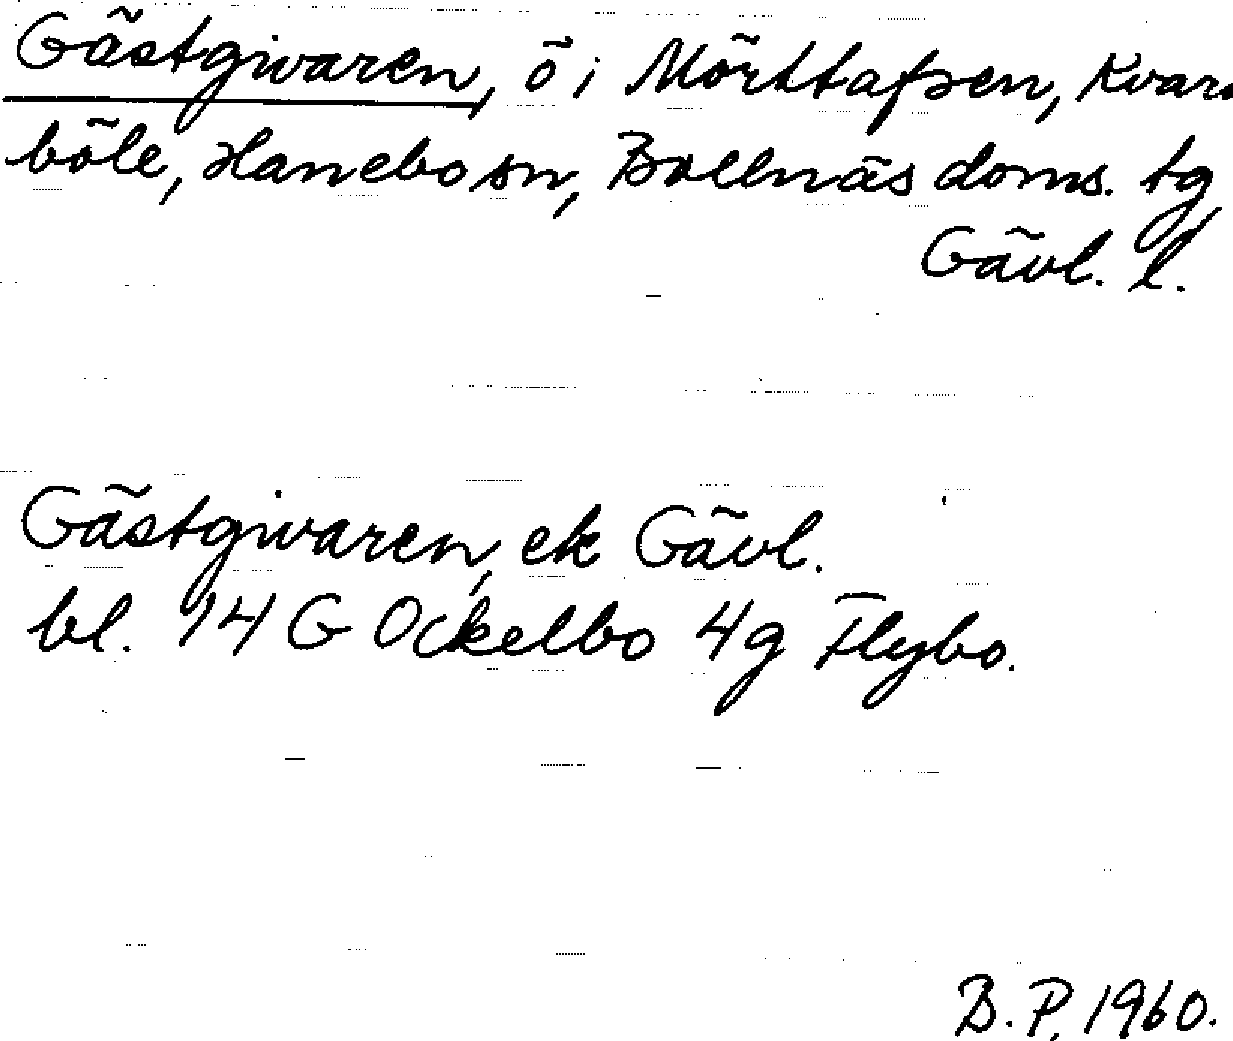 Gästgivaren, ö i Mörttafsen, Kvarn
böle, Hanebo sn, Bollnäs doms. tg
Gävl. l.
Gästgivaren, ek Gävl.
bl. 14 G Ockelbo 4g Flybo.
B. P. 1960.